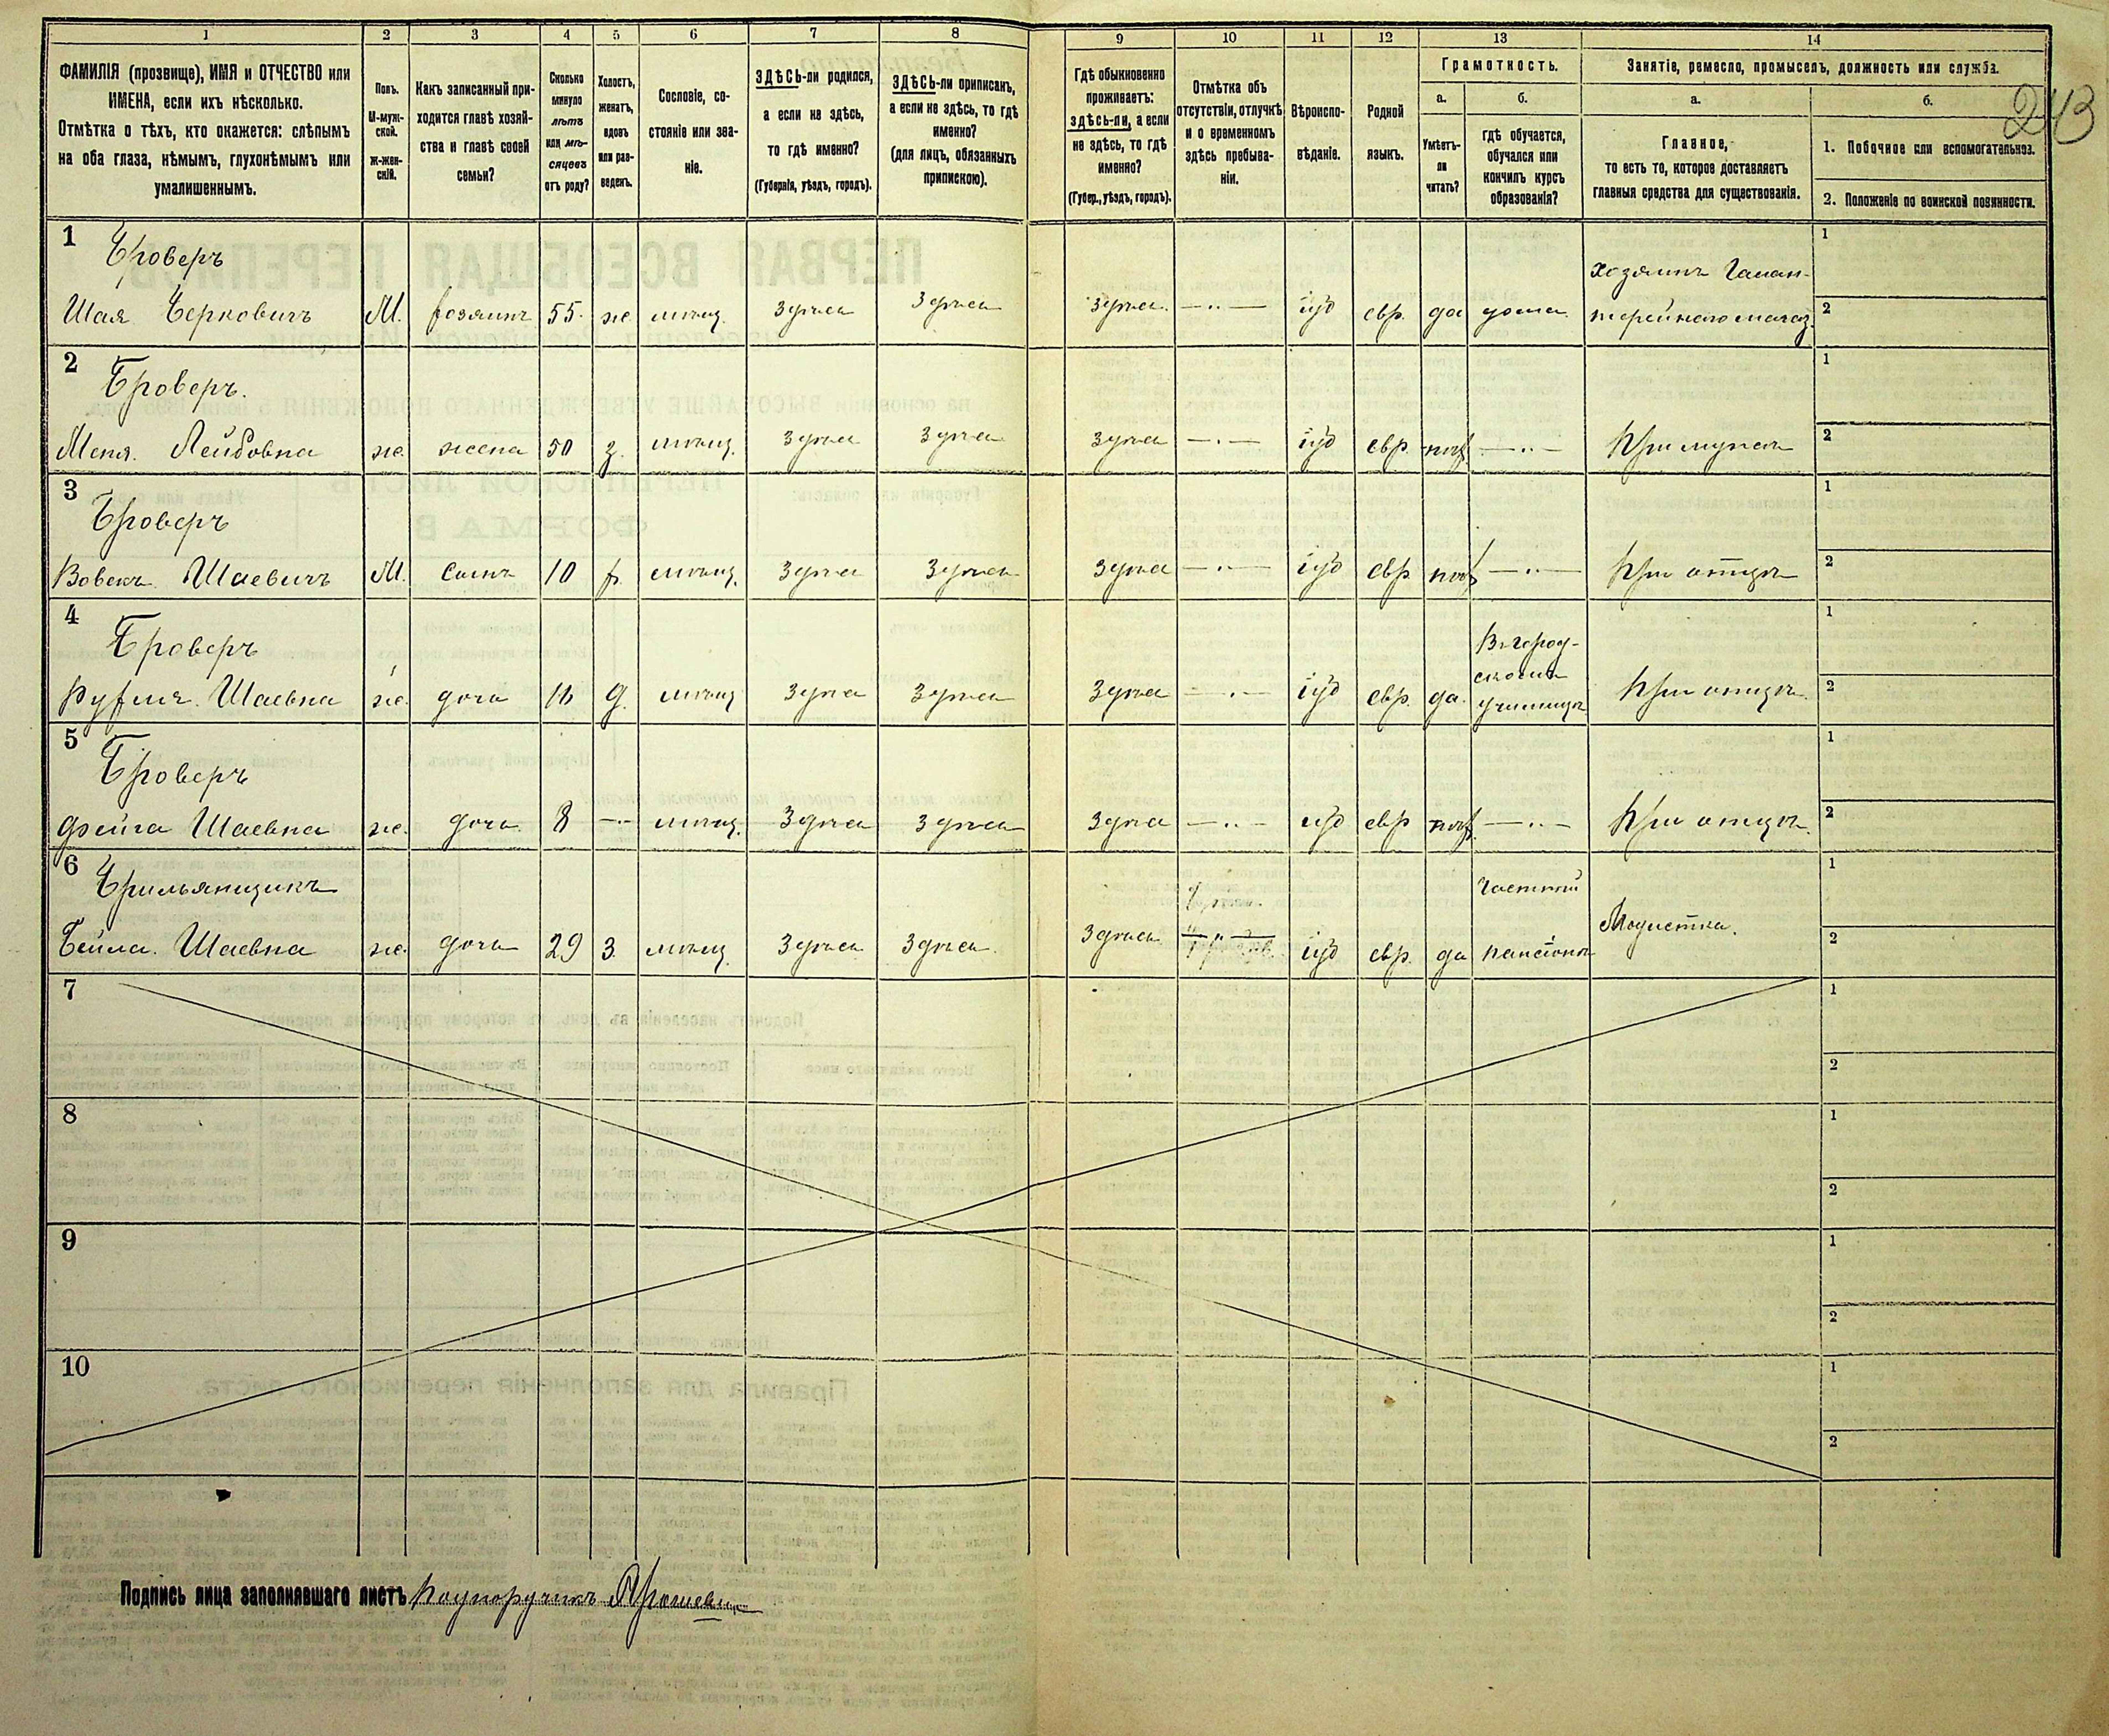 1 2 3 4 5 6 7 8 9 10 11 12 13 14
243
ФАМИЛІЯ (прозвище), ИМЯ и ОТЧЕСТВО или
ИМЕНА, если ихъ нѣсколько.
Отмѣтка о тѣхъ, кто окажется: слѣпымъ
на оба глаза, нѣмымъ, глухонѣмымъ или
умалишеннымъ.
Полъ.
М-муж-
ской.
Ж-жен-
скій.
Какъ записанный при-
ходится главѣ хозяй-
ства и главѣ своей
семьи?
Сколько
минуло
лѣтъ
или мѣ-
сяцевъ
отъ роду?
Холостъ,
женатъ,
вдовъ
или раз-
веденъ.
Сословіе, со-
стояніе или зва-
ніе.
ЗДѢСЬ-ли родился,
а если не здѣсь,
то гдѣ именно?
(Губернія, уѣздъ, городъ).
ЗДѢСЬ-ли приписанъ,
а если не здѣсь, то гдѣ
именно?
(для лицъ, обязанныхъ
припискою).
Гдѣ обыкновенно
проживаетъ:
здѣсь-ли, а если
не здѣсь, то гдѣ
именно?
(Губер., уѣздъ, городъ).
Отмѣтка объ
отсутствіи, отлучкѣ
и о временномъ
здѣсь пребыва-
ніи.
Вѣроиспо-
вѣданіе.
Родной
языкъ.
Грамотность.
а.
Умѣетъ-
ли
читать?
б.
гдѣ обучается,
обучался или
кончилъ курсъ
образованія?
Занятіе, ремесло, промыселъ, должность или служба.
а.
Главное,
то есть то, которое доставляетъ
главныя средства для существованія.
б.
1. Побочное или вспомогательное.
2. Положеніе по воинской повинности.
1
Броверъ
Шая Берковичъ М. хозяинъ 55 ж мѣщ. Здѣсь Здѣсь Здѣсь іуд евр. да дома
Хозяинъ Галан-
терейнаго магаз.
1
2
2
Броверъ.
Меня Лейбовна ж. жена 50 з. мѣщ. Здѣсь Здѣсь Здѣсь іуд евр. нѣт При мужѣ
1
2
3
Броверъ
Вовекъ Шаевичъ М. сынъ 10 х. мѣщ. Здѣсь Здѣсь Здѣсь іуд евр нѣт При отцѣ
1
2
4
Броверъ
Шаевна ж. дочь д. мѣщ Здѣсь Здѣсь Здѣсь іуд евр. да.
Въ город-
скомъ
училищѣ
При отцѣ.
1
2
5
Броверъ
Фейга Шаевна ж. дочь 8 мѣщ. Здѣсь Здѣсь Здѣсь іуд евр нѣт При отцѣ.
1
2
6
Брильянщикъ
Бейла Шаевна ж. дочь 29 з. мѣщ Здѣсь Здѣсь. Здѣсь іуд евр. да
Частный
пансіонъ
Модистка.
1
2
7
1
2
8
1
2
9
1
2
10
1
2
Подпись лица заполнявшаго листъ Подпоручикъ